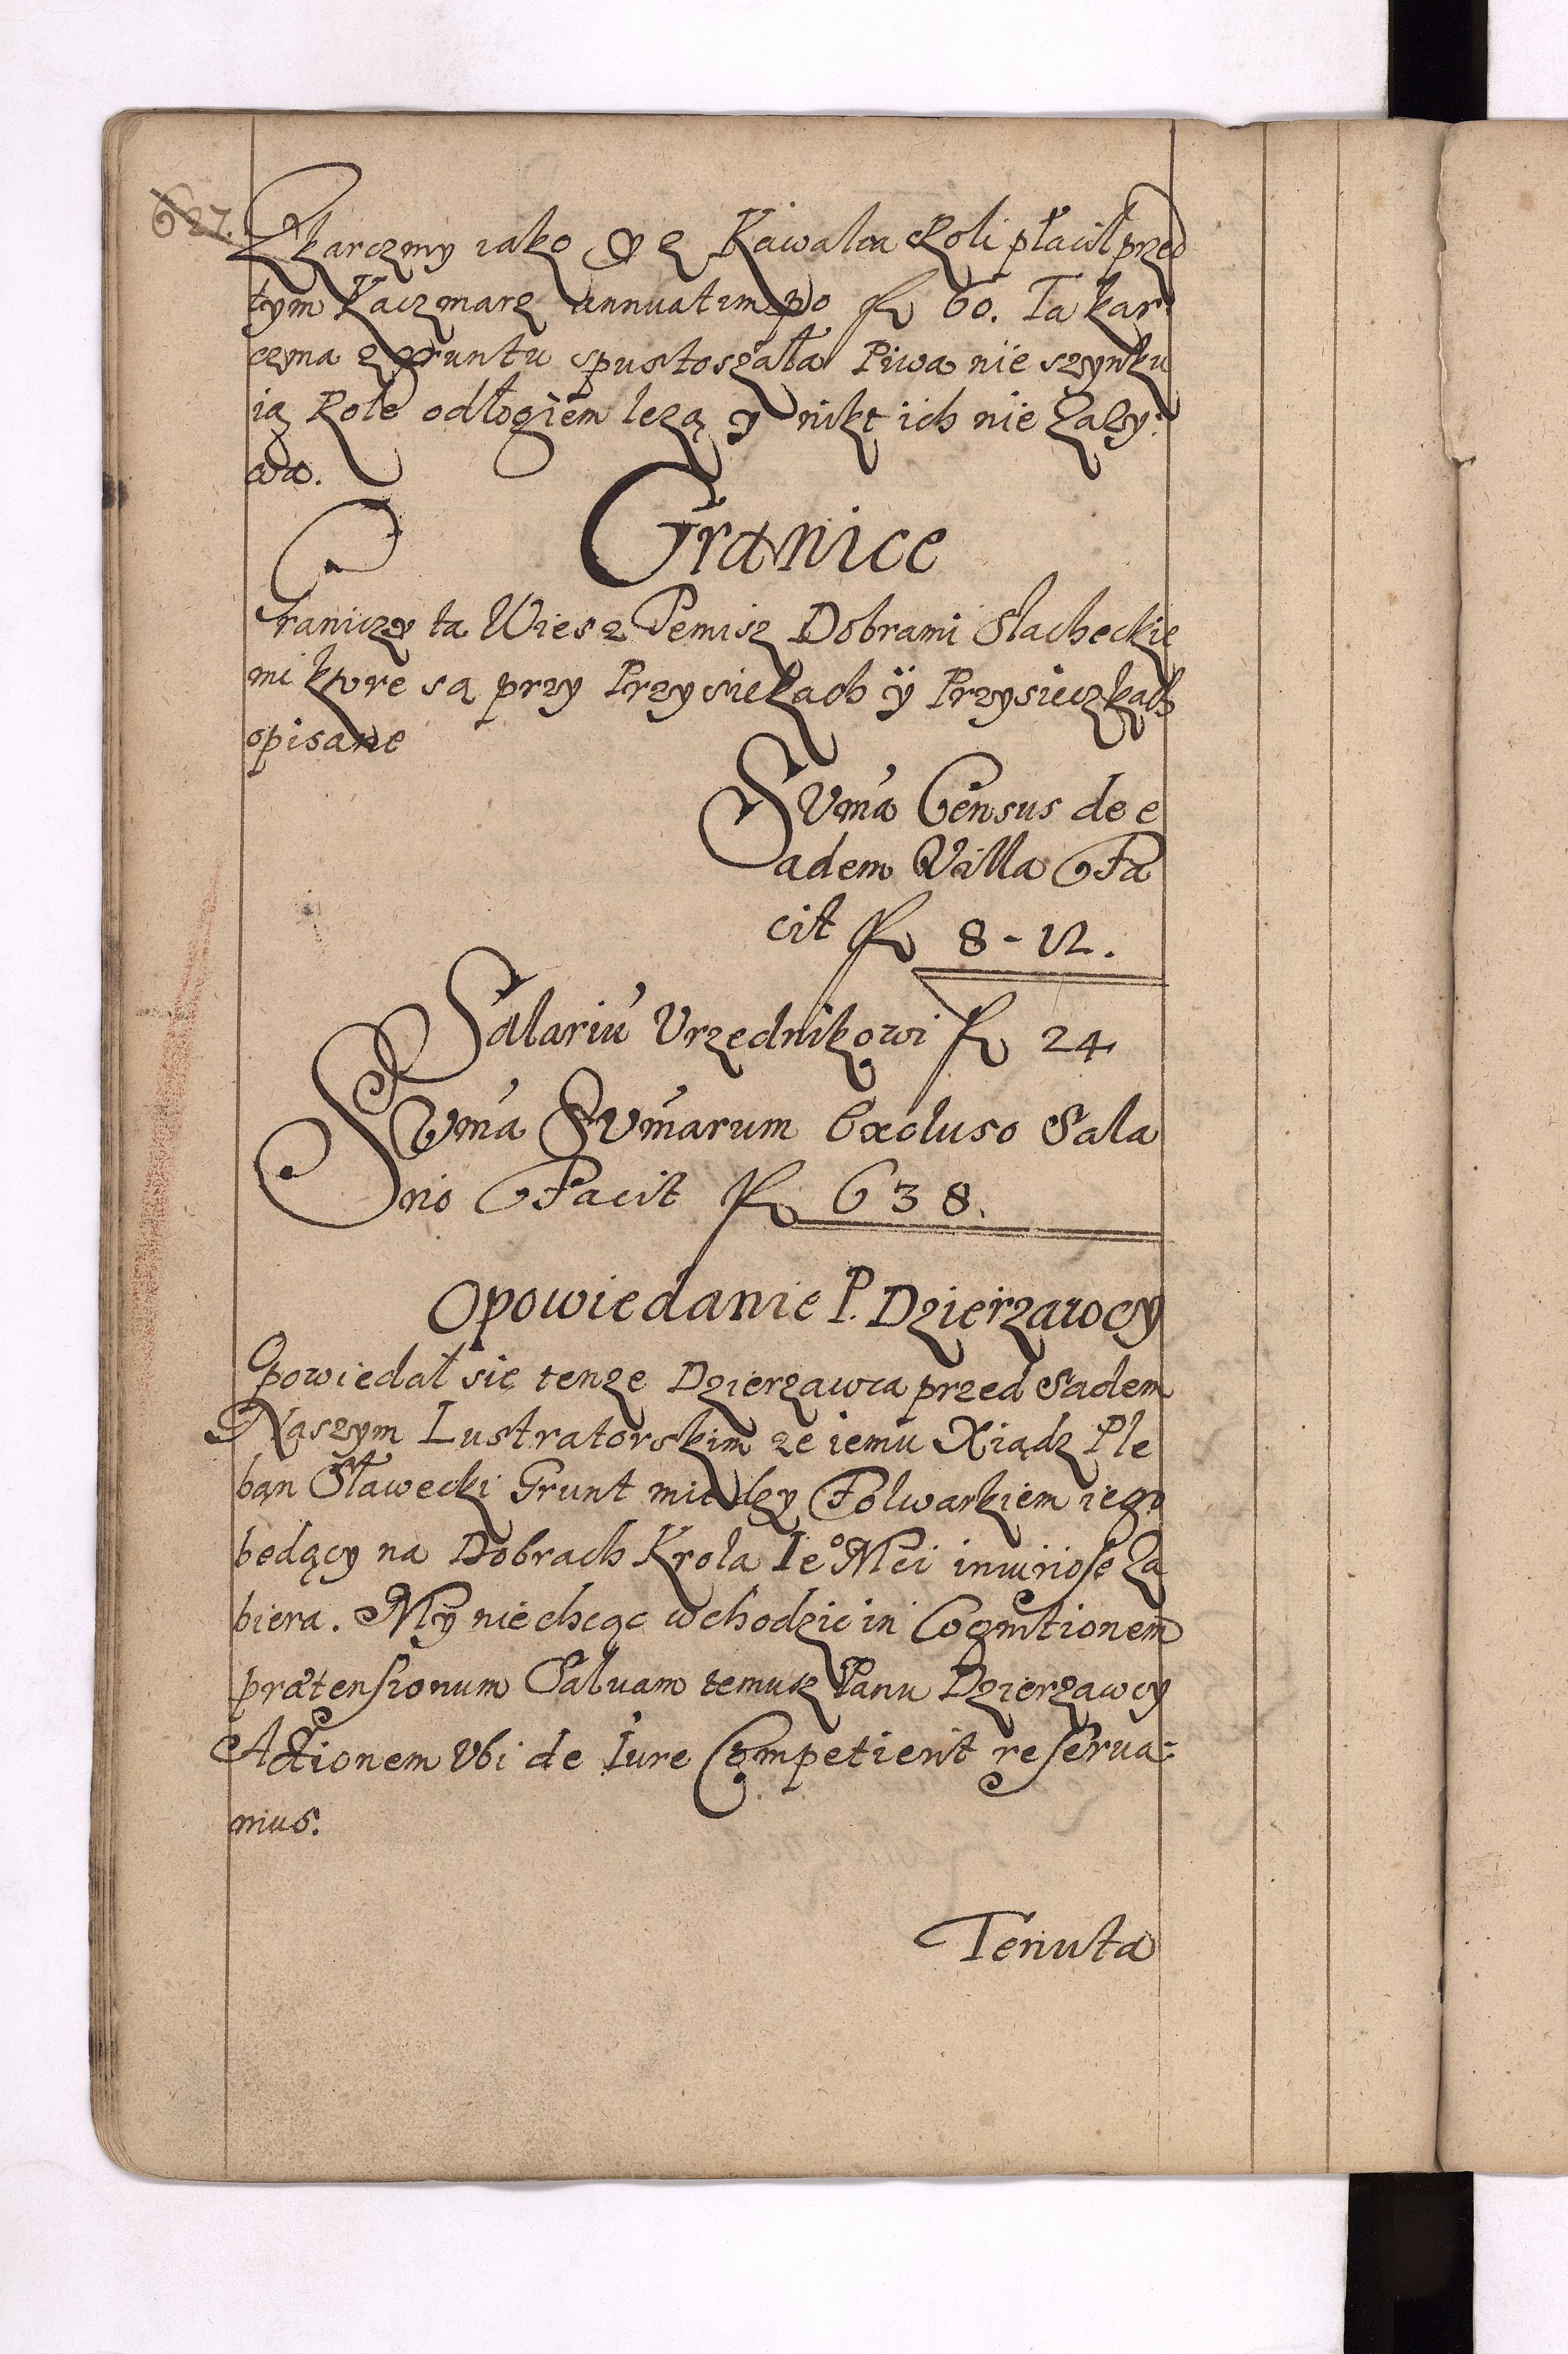 627.
Z karczmy iako y z Kawalca Roli płacił przed
tym Kaczmarz annuatim po fl 60. Ta kar:
czma z gruntu spustoszała Piwa nie szynku
ią Role odłogiem lezą y nikt ich nie zazy:
wa.
Granice
Graniczy ta Wies z Temisz Dobrami Slacheckie
mi ktore są przy Przysiekach ÿ Przysieczkach
opisane
Suma Census de e
adem Villa Fa
cit fl 8-12.
Salariu Vrzednikowi fl 24
Suma Sumarum Excluso Sala
rio Facit fl 638.
Opowiedanie P. Dzierzawcy
Opowiedał się tenze Dzierzawca przed Sadem
Naszym Lustratorskim ze iemu Xiądz Ple
ban Sławecki Grunt miedzy Folwarkiem iego
bedący na Dobrach Krola Ie° Mci iniuriose za
biera. My nie chcąc wchodzic in Cognitionem
prætensionum Saluam temusz Panu Dzierzawcy
Actionem Vbi de Iure Competierit reserua:
mus.
Tenuta